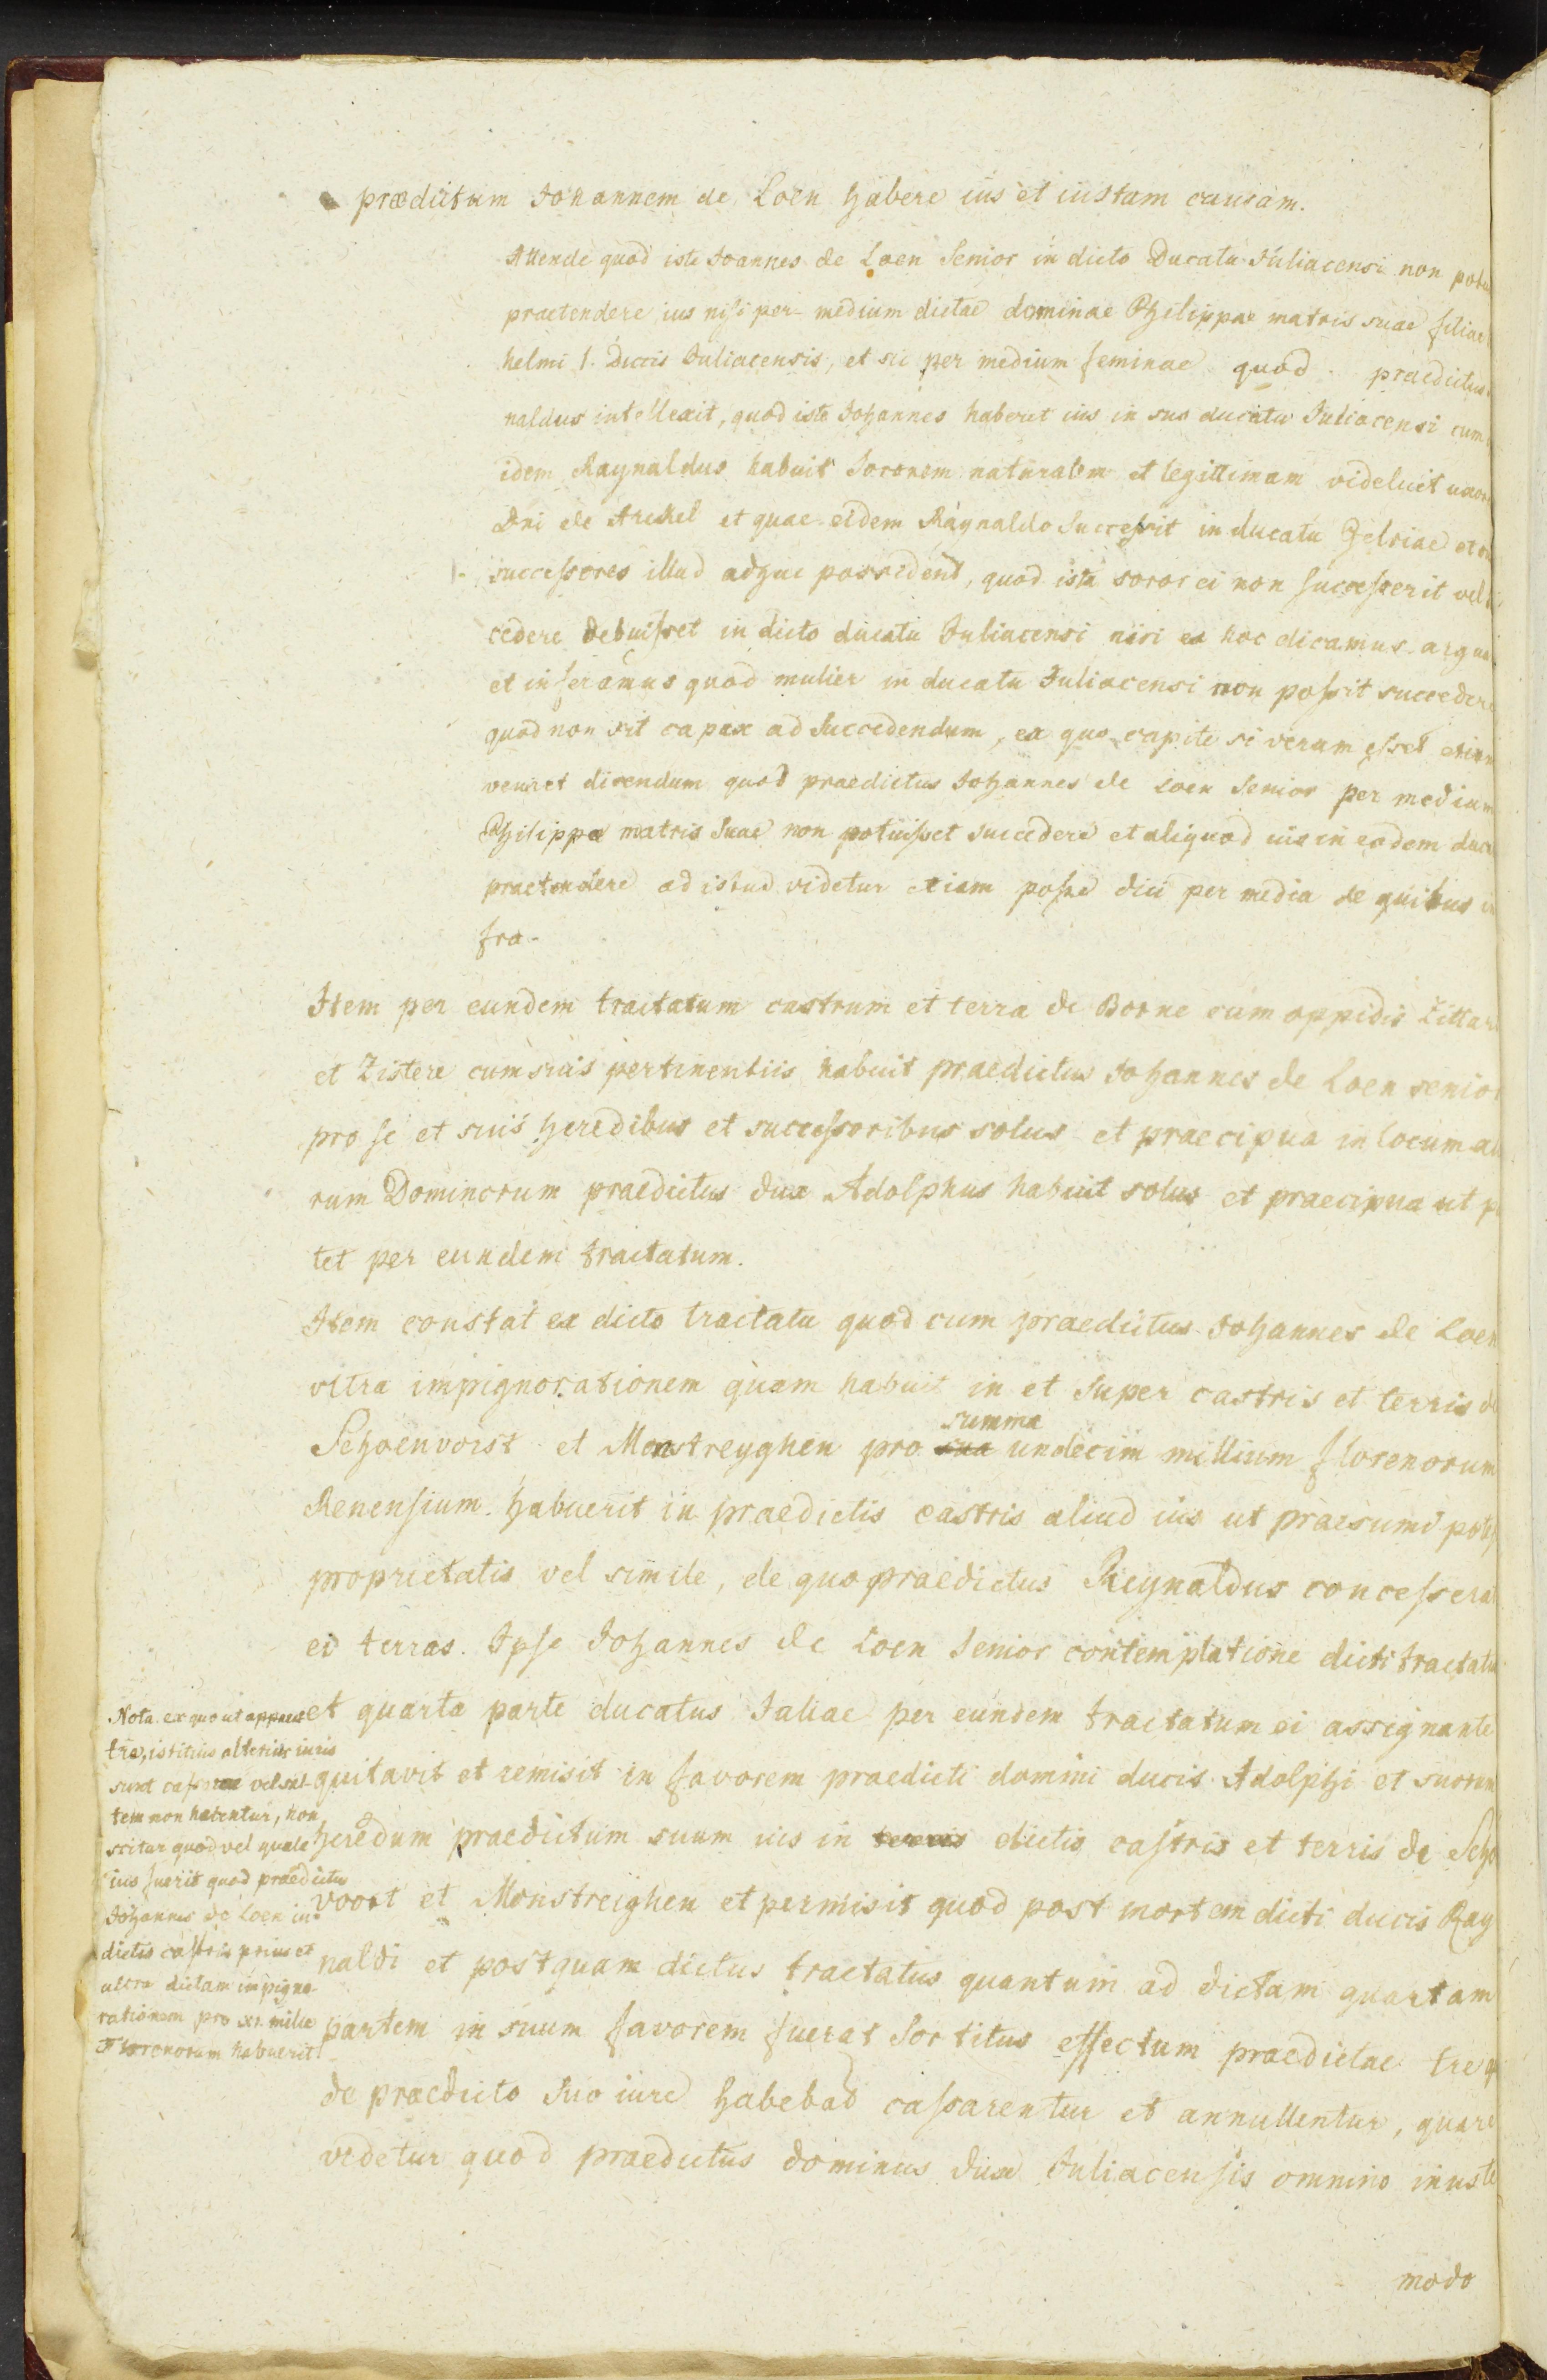 praedictum Johannem de Loen habere ius et iustam causam.
Attende quod iste Joannes de Loen Senior in dicto Ducatu Juliacensi non potu
praetendere ius nisi per medium dictae dominae Philippae matris suae filiae
helmi 1. Ducis Juliacensis, et sic per medium feminae quod praedictus
naldus intellexit, quod iste Johannes haberet ius in suo ducatu Juliacensi cum
idem Raynaldus habuit Sororem naturalem et legittimam videlicet uxor
Dni de Arckel et quae eidem Raynaldo Successit in ducatu Gelriae et
successores illud adhuc possident, quod ista soror ei non successerit vel
cedere debuisset in dicto ducatu Juliacensi nisi ex hoc dicamus argua
et inferamus quod mulier in ducatu Juliacensi non possit succedere
quod non sit capax ad Succedendum, ex quo capite si verum esset etiam
veniret dicendum quod praedictus Johannes de Loen Senior per medium
Philippae matris Suae non potuisset succedere et aliquod ius in eodem duca
praetendere ad istud videtur etiam posse dici per media de quibus in
fra.
Item per eundem tractatum castrum et terra de Borne cum oppidis Zittart
et Zistere cum suis pertinentiis habuit praedictus Johannes de Loen senior
pro se et suis heredibus et successoribus solus et praecipua in locum al
rum Dominorum praedictus dux Adolphus habuit solus et praecipua ut p
tet per eundem tractatum.
Item constat ex dicto tractatu quod cum praedictus Johannes de Loen
vltra impignorationem quam habuit in et Super castris et terris de
summa
Schoenvorst et Monstreyghen pro sua undecim millium florenorum
Renensium habuerit in praedictis castris aliud ius ut praesumi potest
proprietatis vel simile, de quo praedictus Reynaldus concesserat
ei terras. Ipse Johannes de Loen Senior contemplatione dicti tractatu
et quarta parte ducatus Juliae per eundem tractatum ei assignante
quitavit et remisit in favorem praedicti domini ducis Adolphi et suorum
heredum praedictum suum ius in terris dictis castris et terris de Scho
voort et Monstreighen et permisit quod post mortem dicti ducis Ray
naldi et postquam dictus tractatus quantum ad dictam quartam
partem in suum favorem fuerat Sortitus effectum praedictae tre q
de praedicto Suo iure habebad cassarentur et annullentur, quare
videtur quod praedictus dominus dux Juliacensis omnino iniuste
modo
Nota ex quo ut
tre, istitius alterius iuris
sunt vel sal
tem non habentur, non
scitur quod vel quale
ius fuerit quod praedictus
Johannes de Loen in
dictis castris prius et
ultra dictam impigno-
rationem pro XI. mille
Florenorum habuerit